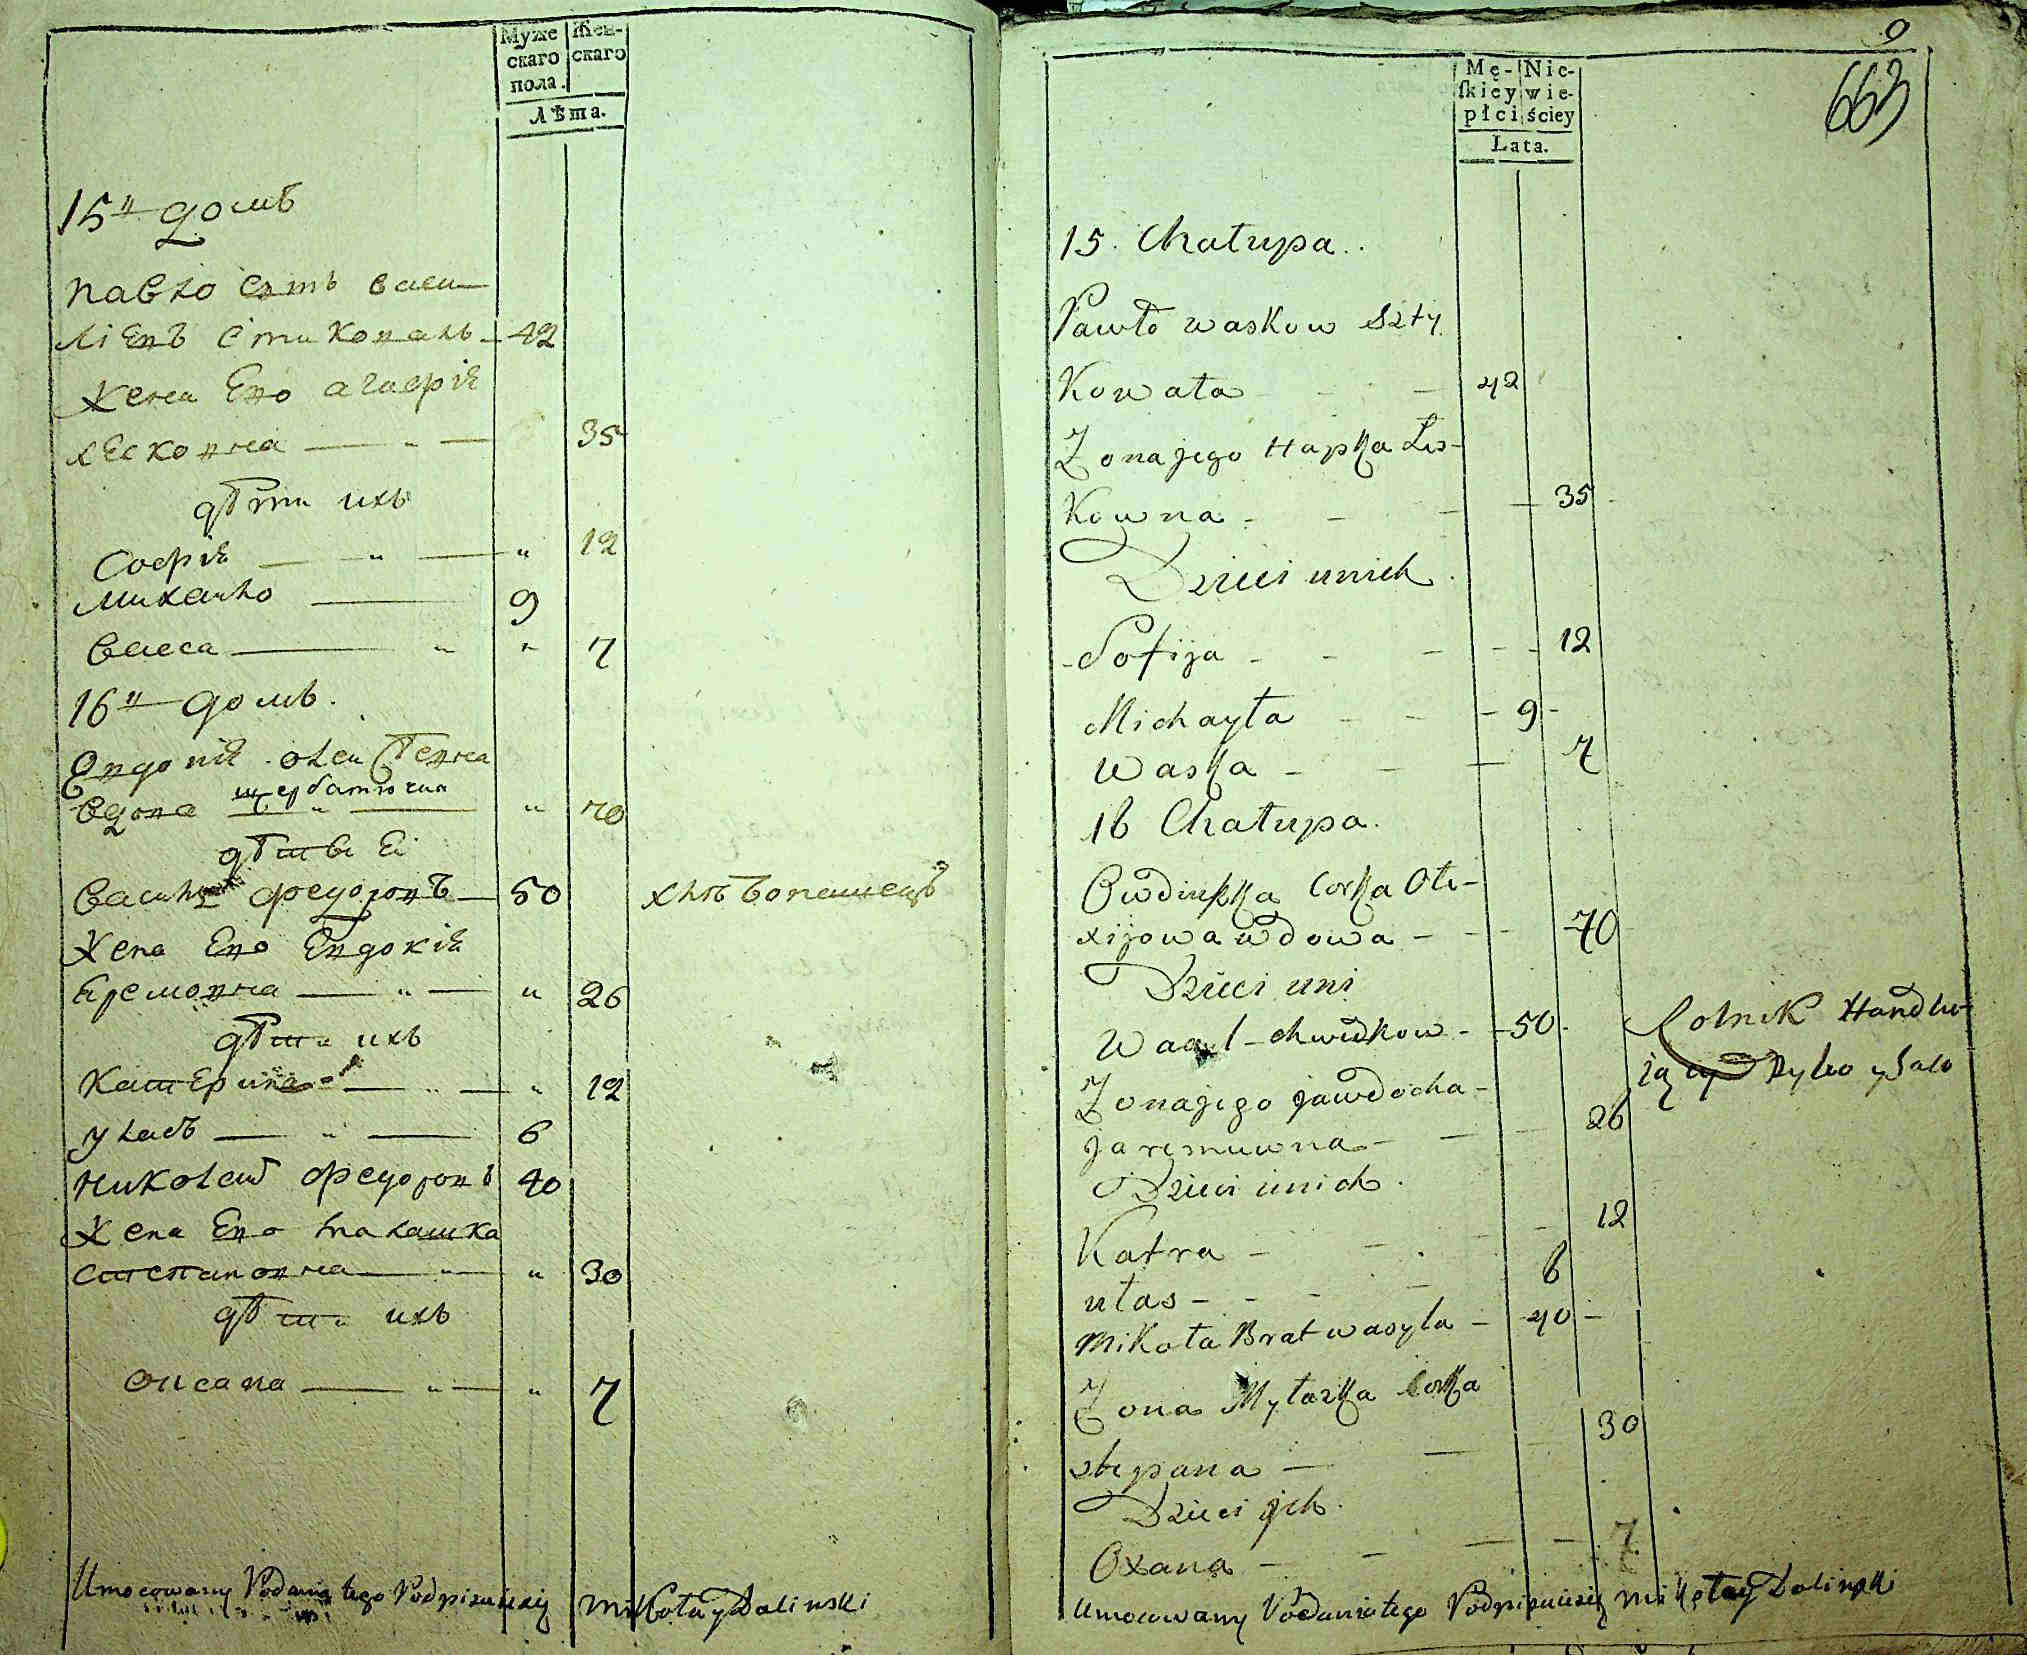 Муже
скаго
пола.
Жен-
скаго
Лѣта.
15й домъ
Павло сынъ васи
ліевъ Стиковалъ 42
Жена Его агафія
Лесковна 35
дѣти ихъ
Софія " " 12
Михайло 9
Васса " " 7
16й домъ.
Евдокія олексѣевна
вдова щербатючка " 70
дѣти Еі
Василь федоровъ 50 хлѣбопашецъ
Жена Его Евдокія
Яремовна " " 26
дѣти ихъ
Катерина " " 12
Уласъ " 6
Николай федоровъ 40
Жена Его малашка
степановна " " 30
дѣти ихъ
Оксана " " 7
Umocowany Podania tego Podpisuiesię Mikołay Dolinski
9
663
Mę-
skiey
płci
Nie-
wie-
ściey
Lata.
15. Chałupa.
Pawło waskow Szty
Kowała 42
Zona jego Hapka Les-
Kowna 35
Dzieci unich.
Sofija 12
Michayła 9
Waska 7
16 Chałupa.
Owdiukka Corka Ole-
xijowa wdowa 70
Dzieci uni
Wasyl chwedkow 50 Rolnik Handlu-
Zona jego jawdocha
jaremuwna 26
Dzieci unich.
Katra 12
ułas 6
Mikoła Brat wasyla 40
Zona Mytaszka Corka
stepana 30
Dzieci jch.
Oxana 7
Umocowany Podania tego Podpisuiesię Mikołay Dolinski